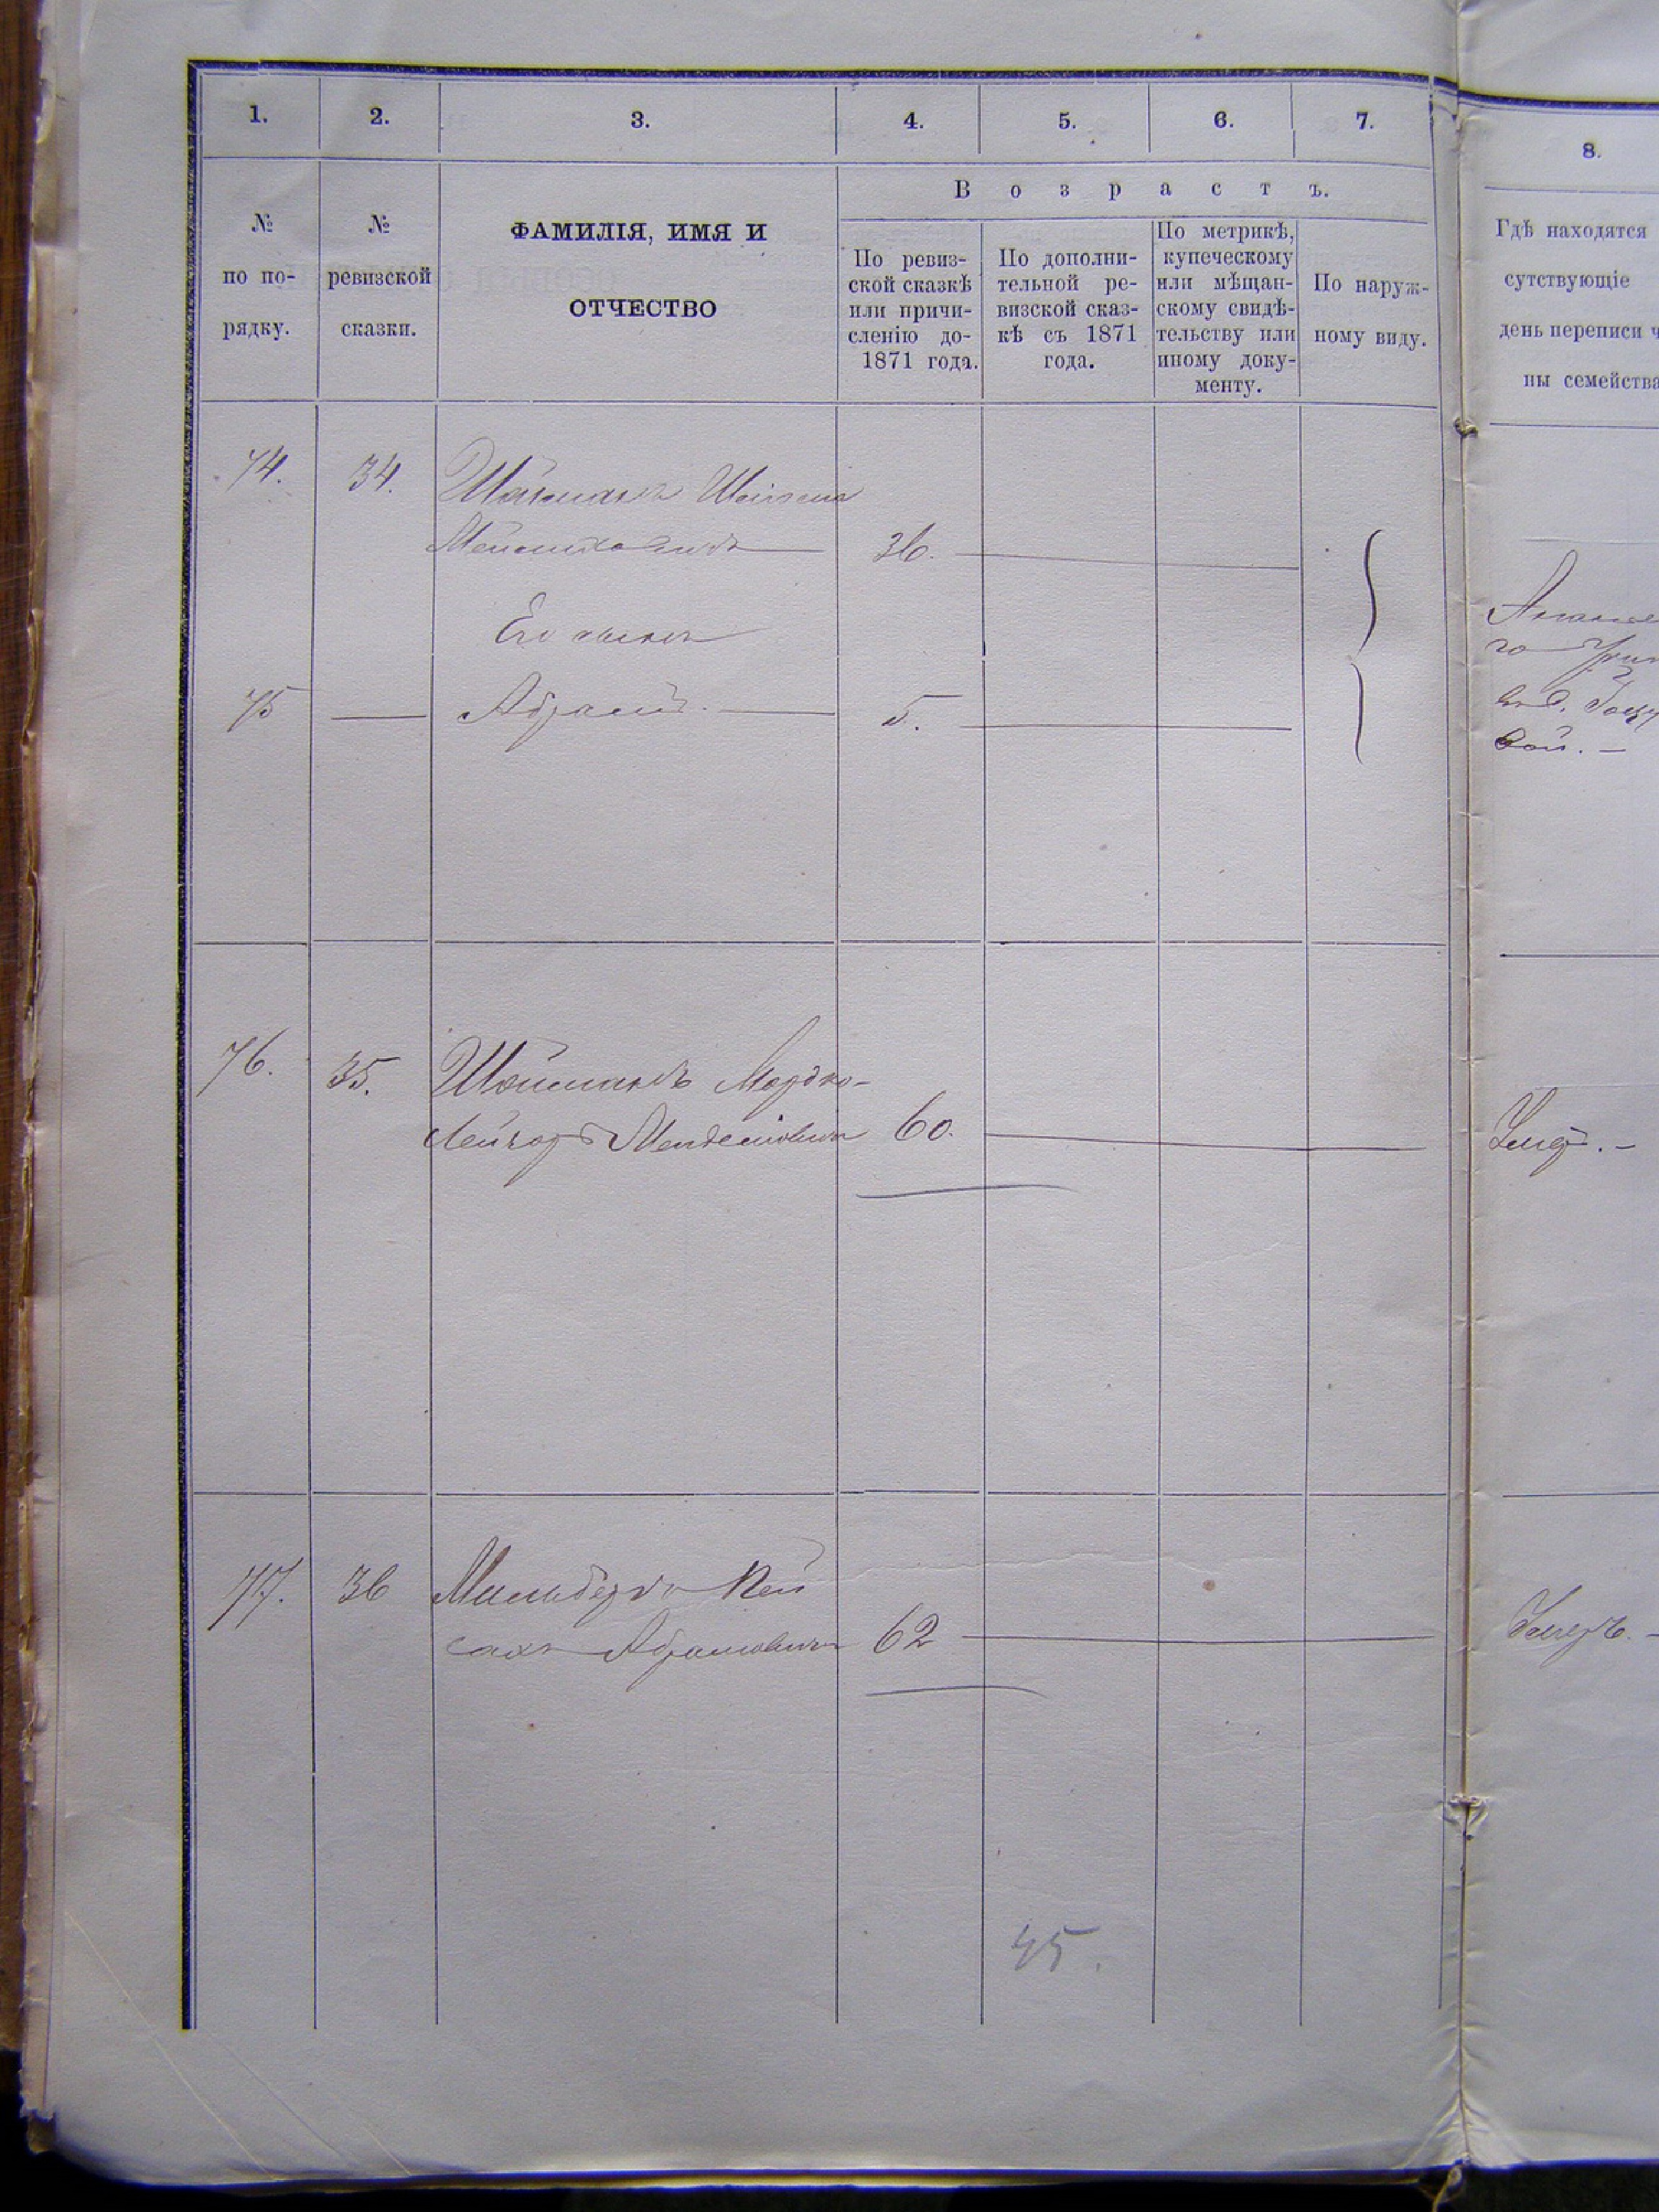 1. 2. 3. 4. 5. 6. 7. 8.
Возрастъ.
№ по по-рядку.
№ ревизской сказки.
ФАМИЛІЯ, ИМЯ И
ОТЧЕСТВО
По ревиз-
ской сказкѣ
или причи-
сленію до-
1871 года.
По дополни-
тельной ре-
визской сказ-
кѣ съ 1871
года.
По метрикѣ,
купеческому
или мѣщан-
скому свидѣ-
тельству или
иному доку-
менту.
По наруж-
ному виду.
Гдѣ находятся
сутствующіе
день переписи ч
ны семейства
74. 34.
36.
Его сынъ
75 — Абрамъ. — 5.
76. 35. Шойманъ Мордко-
Лейзоръ Менделіовичъ 60.
Умеръ. —
77. 36 Мильбергъ Пей
сахъ Абрамовичъ 62
Умеръ. —
45.